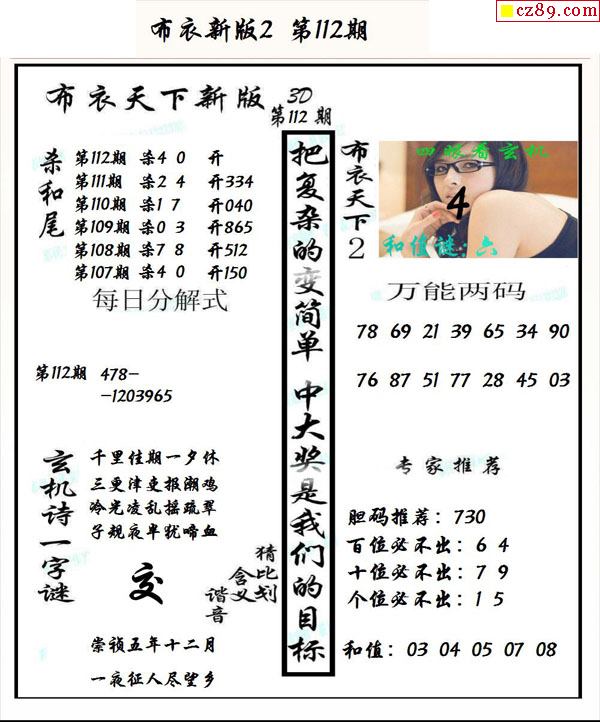 cz89.com
布衣新版2 第112期
布衣天下新版 3D
第112期
杀和尾
第112期 杀4 0 开
第111期 杀2 4 开334
第110期 杀1 7 开040
第109期 杀0 3 开865
第108期 杀7 8 开512
第107期 杀4 0 开150
每日分解式
第112期 478-
-1203965
玄机诗一字谜
千里佳期一夕休
三更津吏报潮鸡
冷光凌乱摇疏翠
子规夜半犹啼血
交
猜比划
含义
谐音
崇祯五年十二月
一夜征人尽望乡
把复杂的变简单 中大奖是我们的目标
布衣天下2
四眼看玄机
4
和值谜:六
万能两码
78 69 21 39 65 34 90
76 87 51 77 28 45 03
专家推荐
胆码推荐：730
百位必不出：6 4
十位必不出：7 9
个位必不出：1 5
和值：03 04 05 07 08